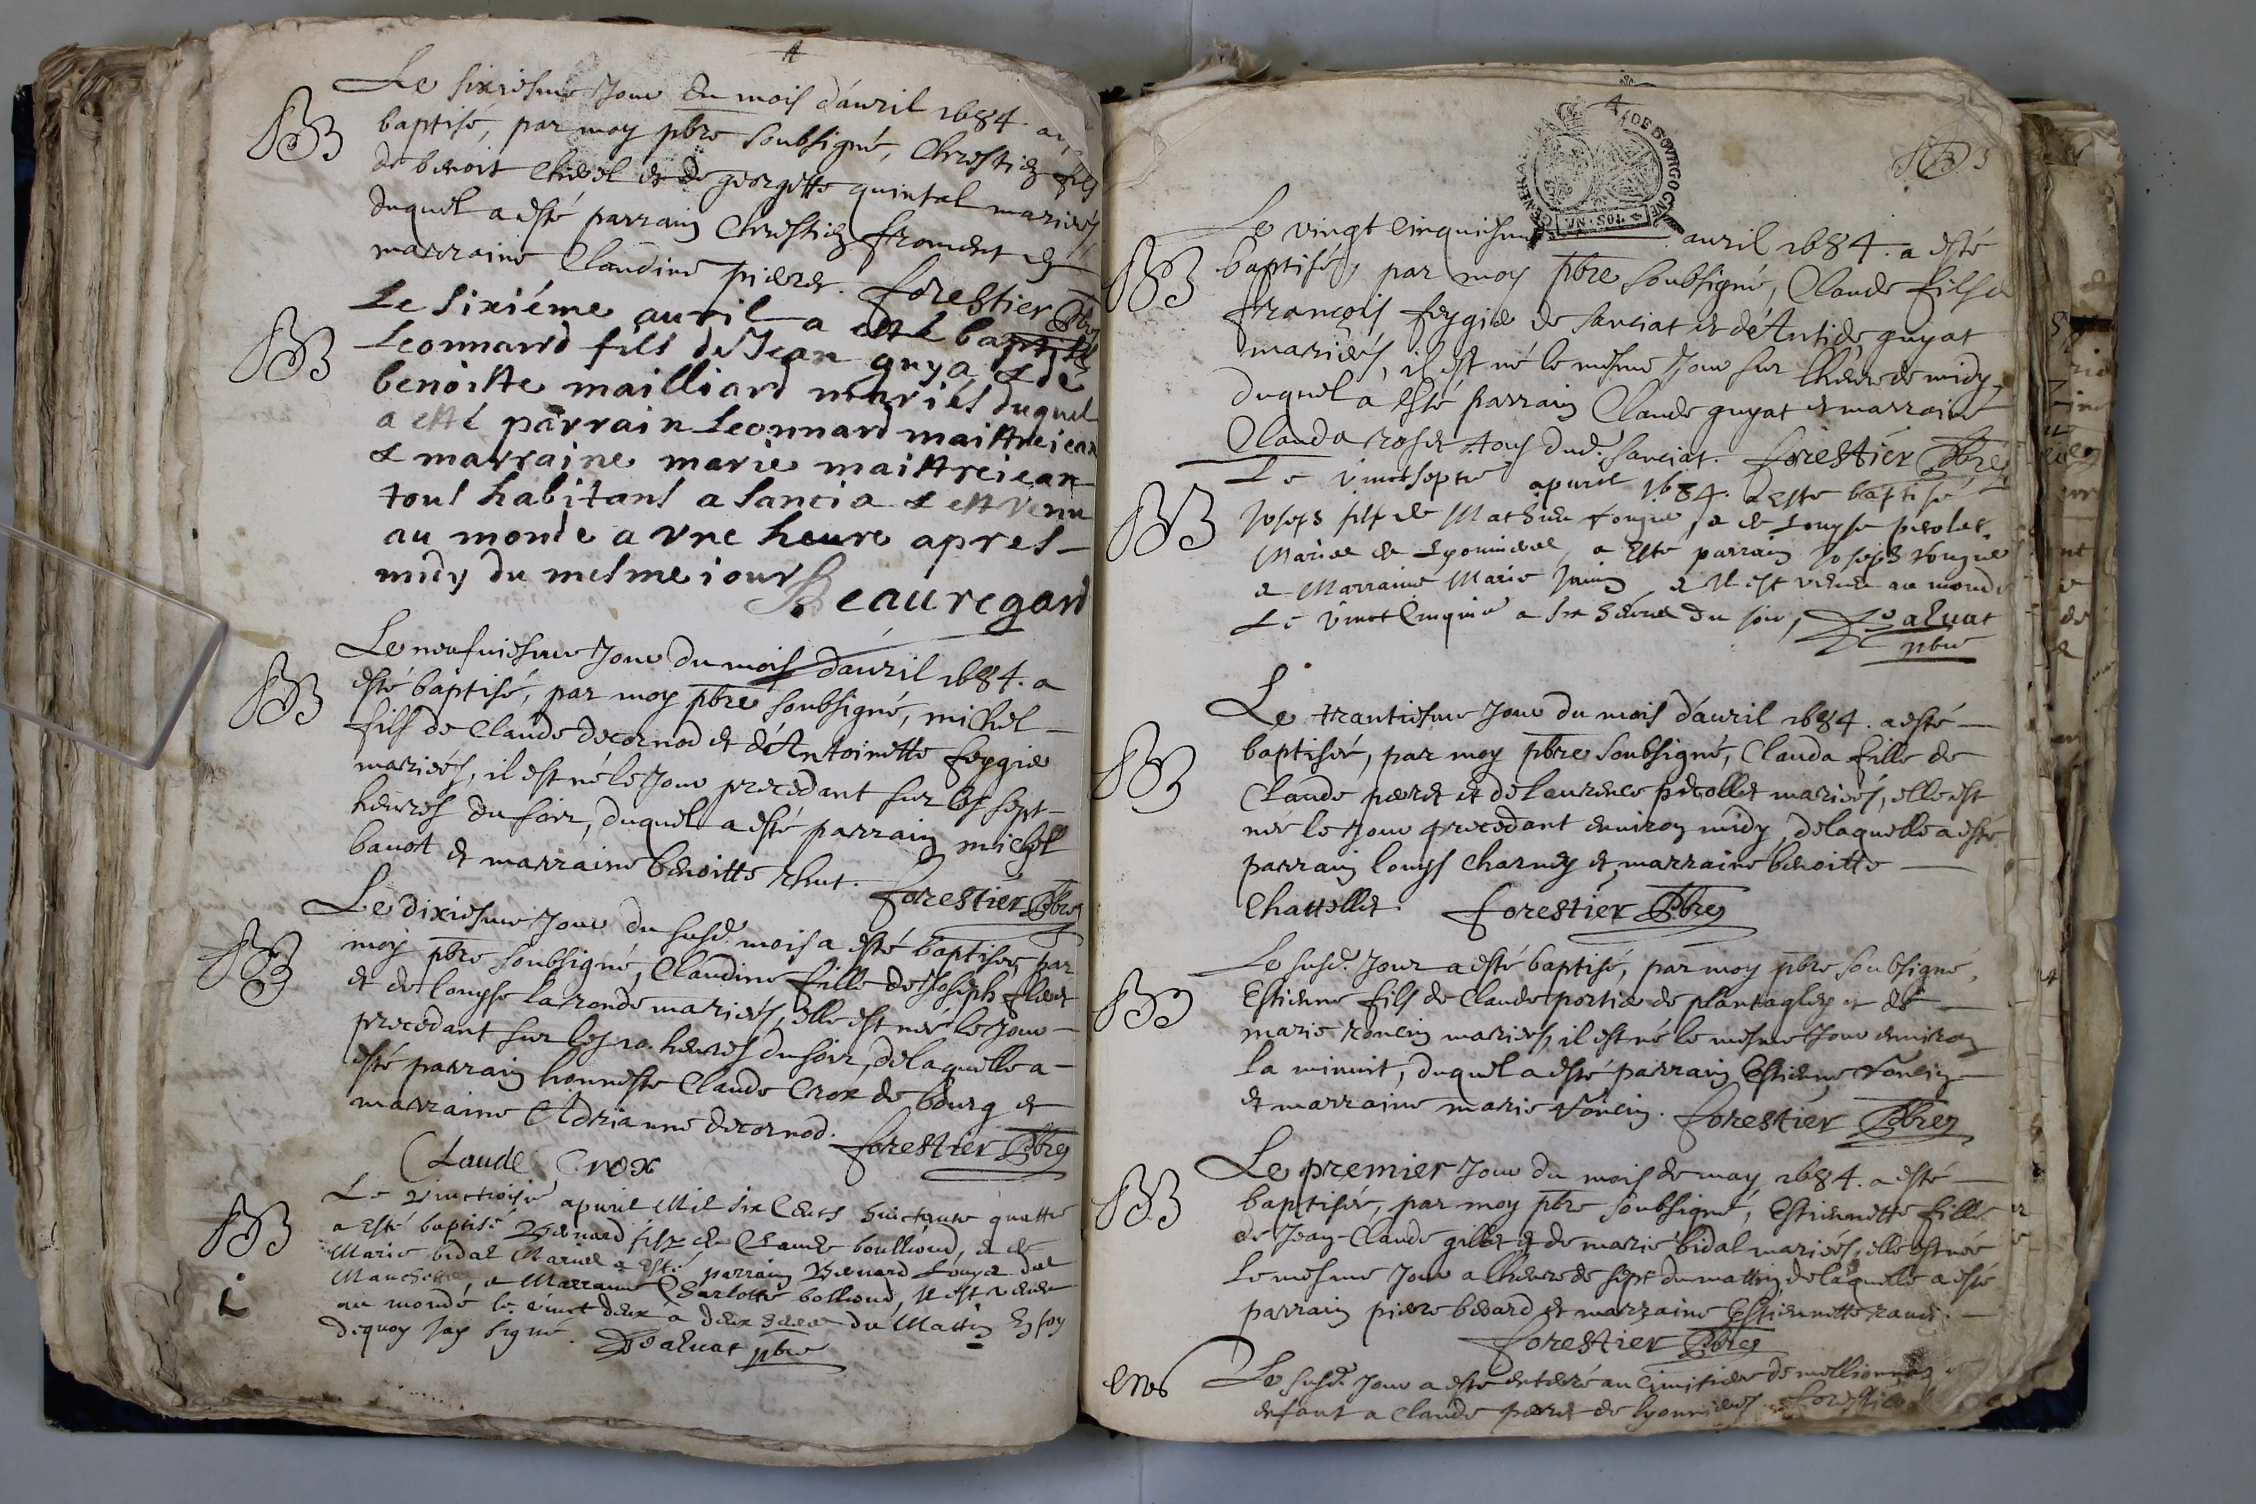 Le sixiesme Jour du mois d'avril 1684. a
baptisé, par moy pbre soubsigné, Chrestien fils
de benoit Chevel et de georgette quintal mariés
duquel a esté parrain Chrestien froment et
marraine Claudine pierre. forestier Pbre
Le sixiéme auril a esté baptisé
Leonnard fils de Jean guya & de
benoiste mailliard mariés duquel
a esté parrain Leonnard maistreiean
& marraine marie maistreiean
tous habitans a sancia & est venu
au monde a vne heure apres
midy du mesme iour
Beauregard
Le neufuiesme Jour du mois d'auril 1684. a
esté baptisé, par moy pbre soubsigné, michel
fils de Claude decornod et d'Antoinette feygie
mariés, il est né le Jour precedant sur les sept
heures du soir, duquel a esté parrain michel
bauot et marraine benoitte
forestier Pbre
Le dixiesme Jour du susd. mois a esté baptisée par
moy pbre soubsigné, Claudine fille de Joseph
et de louyse la ronde mariés, elle est née le Jour
precedant sur les 10. heures du soir, de laquelle a
esté parrain honneste Claude Crox de bourg et
marraine Adrianne decornod.
forestier Pbre
Claude Crox
Le vinctroisie apuril Mil six Cents huictante quattre
a Esté baptisé Bernard filz de Claude boullioud, & de
Marie bidal Mariés a Esté parrain Bernard
& Marraine Charlotte bollioud, Il est venu
au monde le vinct deux a deux heures du Mattin En foy
dequoy jay signé. pbre
4
GENERAL DE BOURGOGNE
Le vingt cinquiesme auril 1684. a esté
baptisé, par moy pbre soubsigné, Claude fils de
françois feygie de sanciat et d'Antide guyat
mariés, il est né le mesme Jour sur lheure de midy,
duquel a esté parrain Claude guyat et marraine
Clauda rosset tous dud. sanciat. forestier Pbre
Le vinctseptie apuril 1684. a esté baptisé
Joseph filz de Mathieu & de Louyse picolet
Mariés de Lyonnieres, a Esté parrain Joseph
& Marraine Marie & Il est venu au monde
Le vinct Cinquie a six heures du soir,
pbre
Le trantiesme Jour du mois d'auril 1684. a esté
baptisée, par moy pbre soubsigné, Clauda fille de
Claude perret et de laurence picollet mariés, elle est
née le Jour precedant enuiron midy, de laquelle a esté
parrain louys Charney et marraine benoitte
Chattellet. forestier Pbre
Le susd. Jour a esté baptisé, par moy pbre soubsigné,
Estienne fils de Claude portier de plantaglay et de
marie roncin mariés, il est né le mesme Jour enuiron
la minuit, duquel a esté parrain Estienne
et marraine marie forestier Pbre
Le premier Jour du mois de may 1684. a esté
baptisée, par moy pbre soubsigné, Estiennette fille
de Jean-Claude gillet et de marie bidal mariés, elle est née
le mesme Jour a lheure de sept du mattin, de laquelle a esté
parrain piere beuard et marraine Estiennette
forestier Pbre
Le susd. Jour a esté enterré au cimitiere de
enfant a Claude perret de lyonnieres forestier